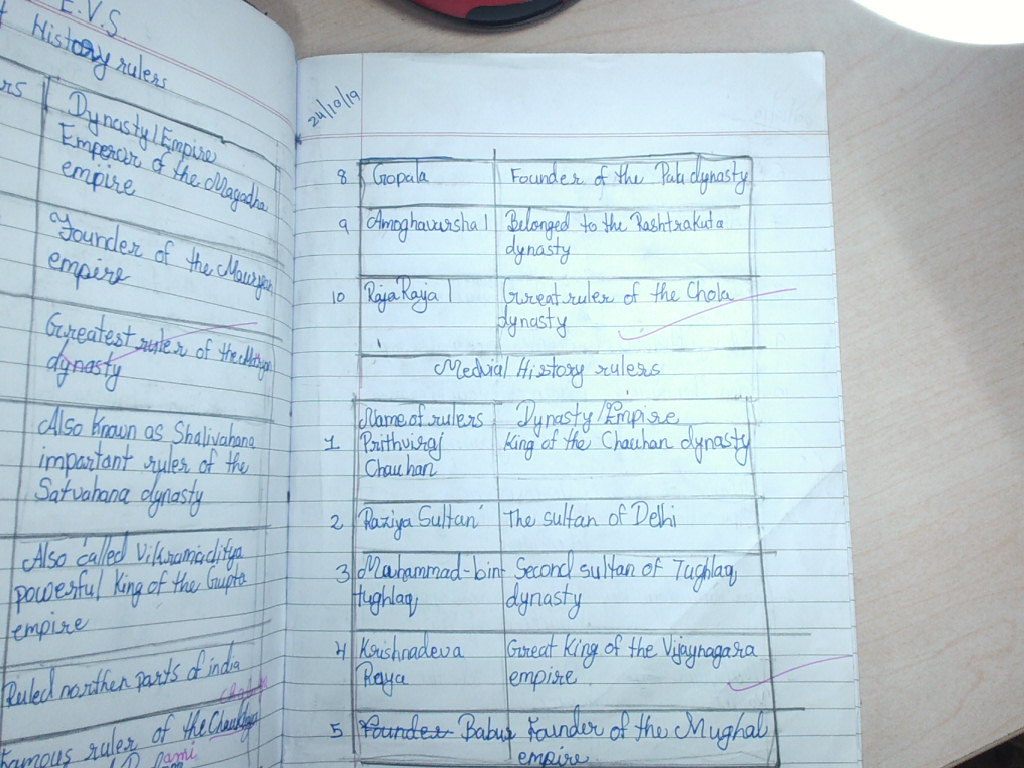 E.V.S.
History rulers
rs
Dynasty/Empire
Emperor of the Magadha
empire
Founder of the Mauryan
empire
Greatest ruler of the
dynasty
Also Known as Shalivahana
impartant ruler of the
Satvahana dynasty
Also called Vikramaditya
powerful King of the Gupta
empire
Ruled northen parts of india
famous ruler of the
ami
24/10/19
8 Gopala Founder of the Pala dynasty
9 Amoghavarsha I Belonged to the Rashtrakuta
dynasty
10 Raja Raja I Great ruler of the Chola
dynasty
Medvial History rulers
Name of rulers Dynasty/Empire
1 Prithviraj King of the Chauhan dynasty
Chauhan
2 Raziya Sultan The sultan of Delhi
3 Mauhammad-bin Second sultan of Tughlaq
tughlaq dynasty
4 Krishnadeva Great King of the Vijaynagara
Raya empire
5 Founder Babur Founder of the Mughal
empire